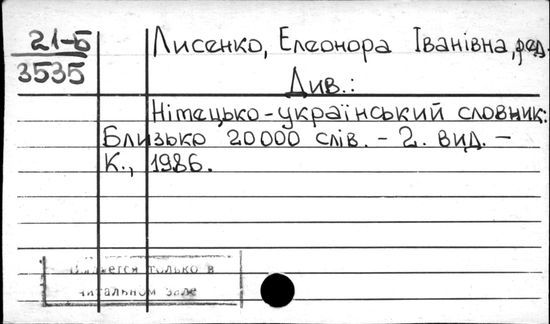 21-Б
3535
Лисенко, Елеонора Іванівна, ред.
Див.:
Німецько-український словник:
Близько 20000 слів. - 2. вид. -
К., 1986.
только в
читальном зале